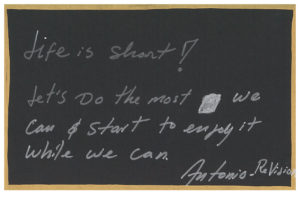 Life is short!
Let's Do the most we
Can & Start to enjoy it
While we can.
Antonio - ReVision